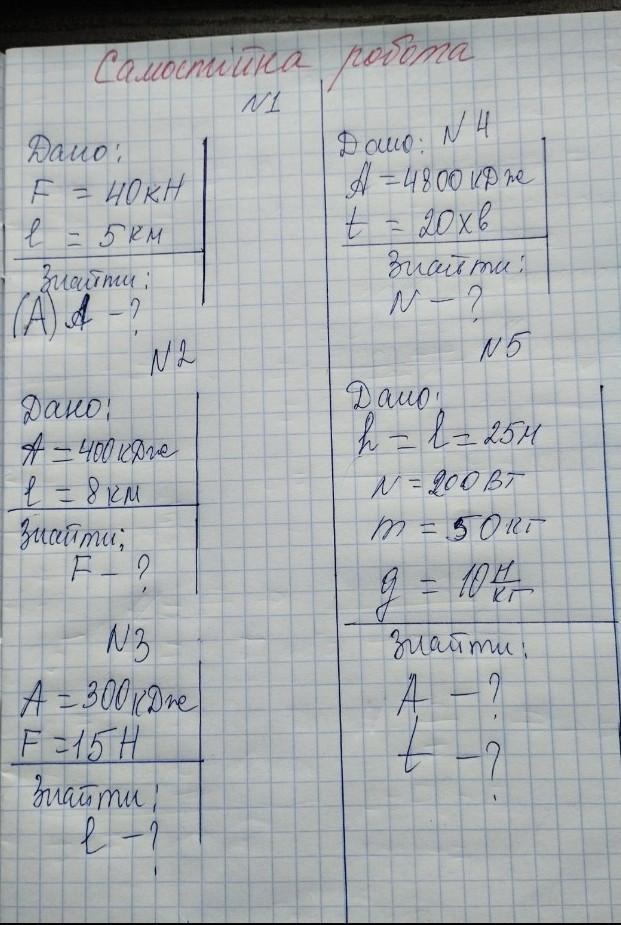 Самостійна робота
N1
Дано:
F = 40кН
l = 5км
Знайти:
(A) A - ?
N2
Дано:
A = 400кДж
l = 8км
Знайти:
F - ?
N3
A = 300кДж
F = 15Н
Знайти:
l - ?
Дано: N4
A = 4800кДж
t = 20хв
Знайти:
N - ?
N5
Дано:
h = l = 25м
N = 200Вт
m = 50кг
g = 10 Н/кг
Знайти:
A - ?
t - ?